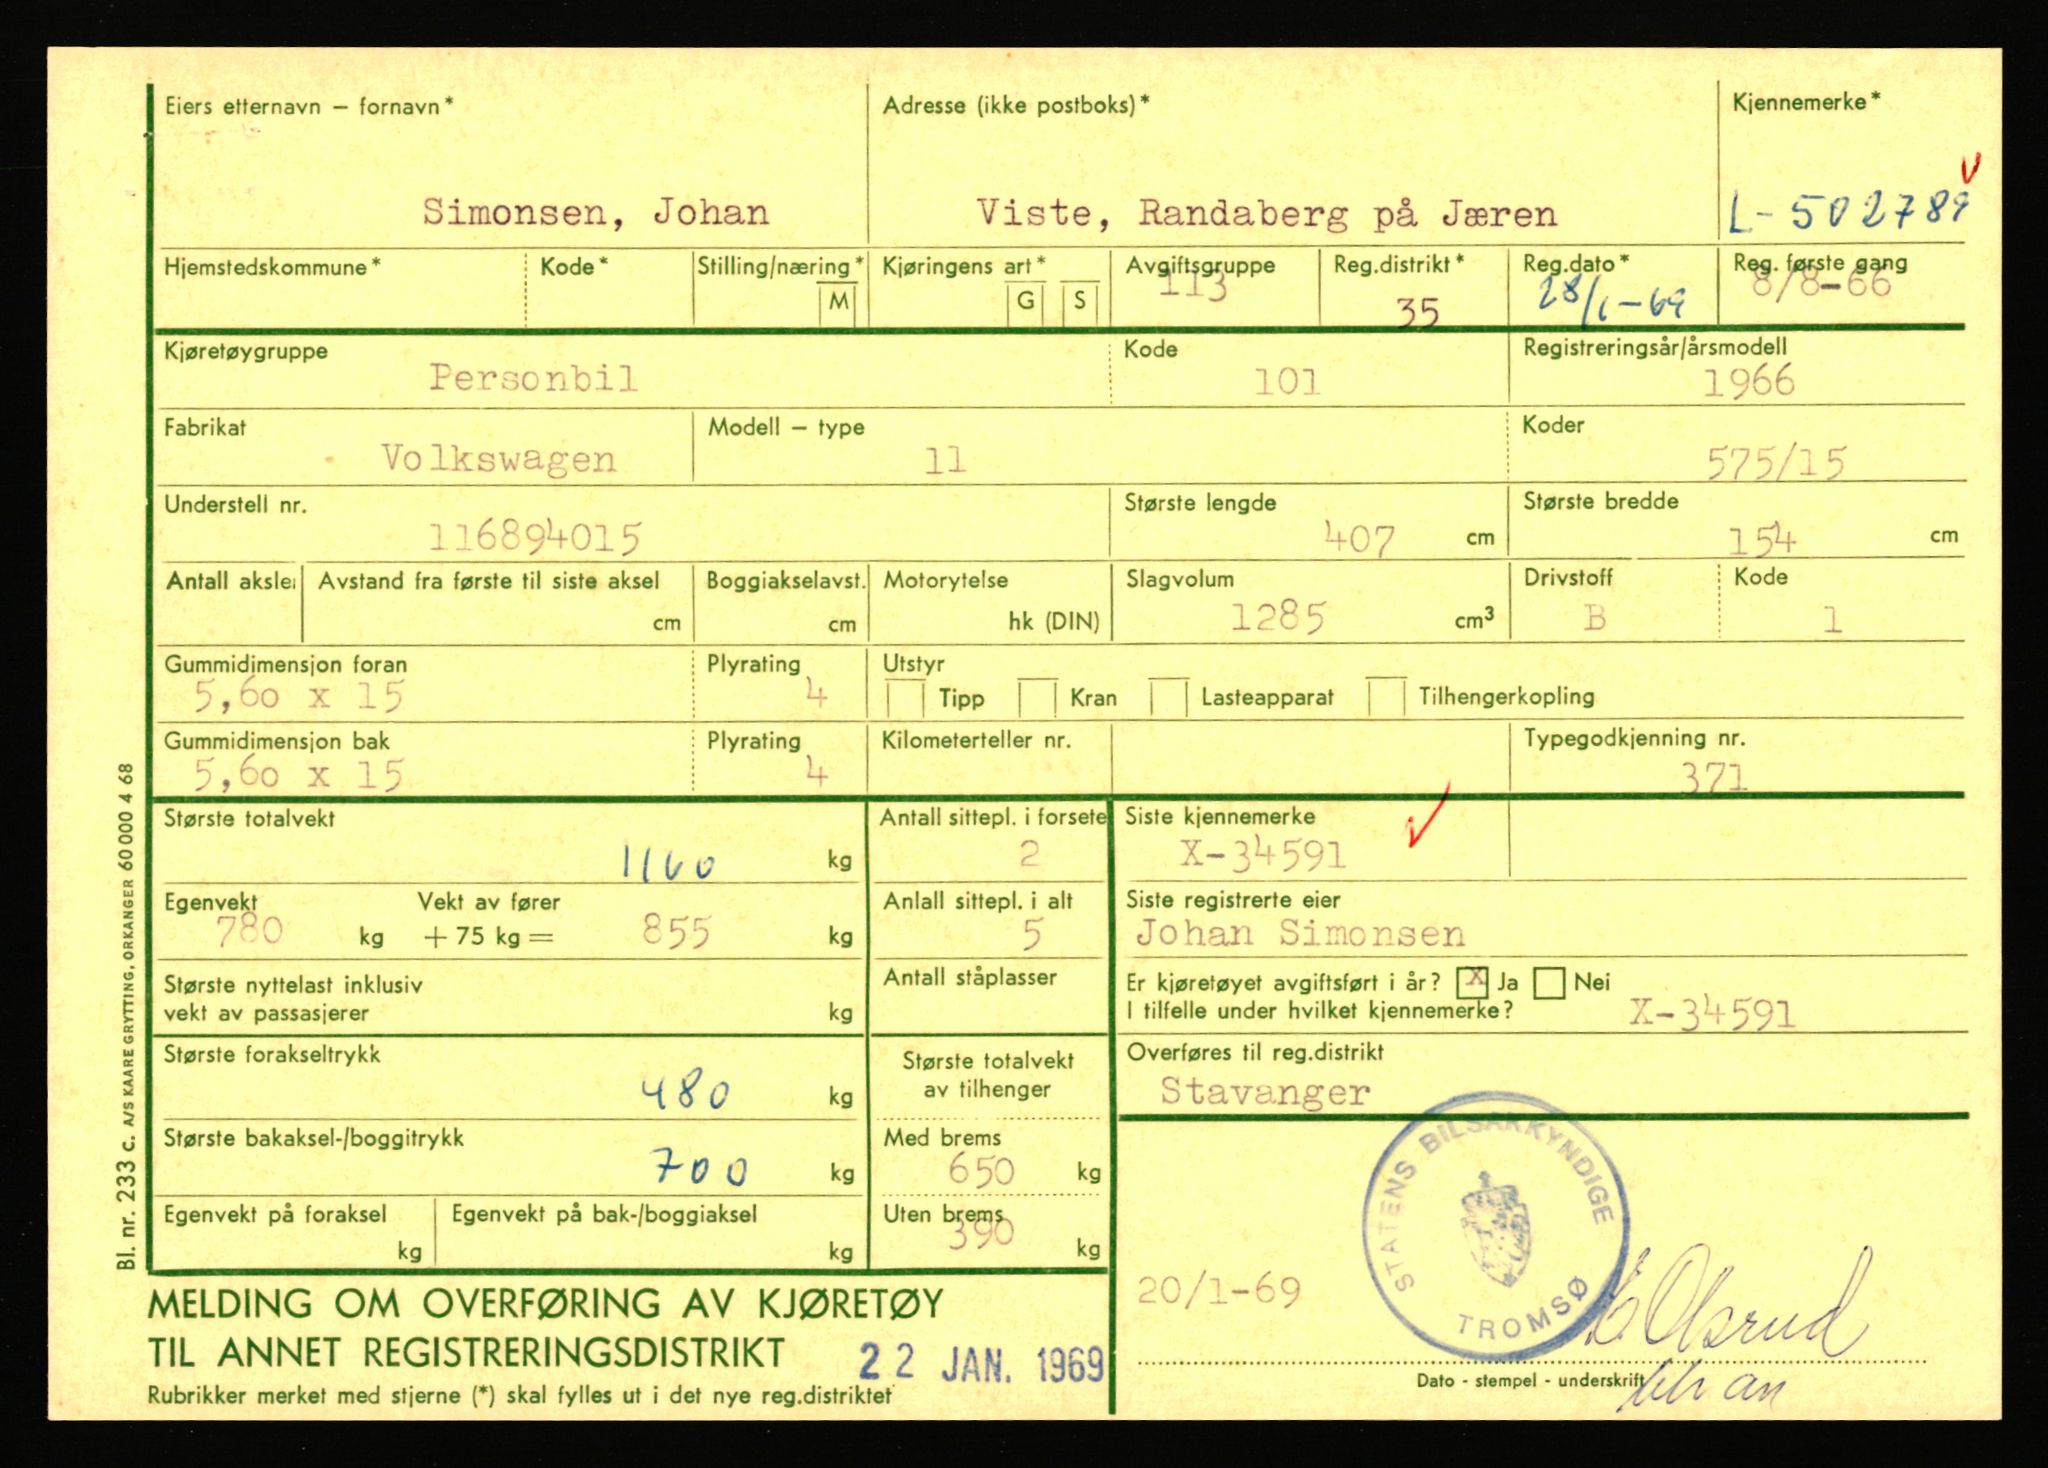 Eiers etternavn – fornavn*
Simonsen, Johan
Adresse (ikke postboks)*
Viste, Randaberg på Jæren
Kjennemerke*
L-502789
Hjemstedskommune*
Kode*
Stilling/næring*
M
Kjøringens art*
G S
Avgiftsgruppe
113
Reg.distrikt*
35
Reg.dato*
28/1-69
Reg. første gang
8/8-66
Kjøretøygruppe
Personbil
Kode
101
Registreringsår/årsmodell
1966
Fabrikat
Volkswagen
Modell – type
11
Koder
575/15
Understell nr.
116894015
Største lengde
407 cm
Største bredde
154 cm
Antall aksler
Avstand fra første til siste aksel
cm
Boggiakselavst.
cm
Motorytelse
hk (DIN)
Slagvolum
1285 cm3
Drivstoff
B
Kode
1
Gummidimensjon foran
5,60 x 15
Plyrating
4
Utstyr
Tipp Kran Lasteapparat Tilhengerkopling
Gummidimensjon bak
5,60 x 15
Plyrating
4
Kilometerteller nr.
Typegodkjenning nr.
371
Største totalvekt
1160 kg
Antall sittepl. i forsete
2
Siste kjennemerke
X-34591
Egenvekt
780 kg
Vekt av fører
+ 75 kg = 855 kg
Anlall sittepl. i alt
5
Siste registrerte eier
Johan Simonsen
Største nyttelast inklusiv
vekt av passasjerer kg
Antall ståplasser
Er kjøretøyet avgiftsført i år? x Ja Nei
I tilfelle under hvilket kjennemerke? X-34591
Største forakseltrykk
480 kg
Største totalvekt
av tilhenger
Overføres til reg.distrikt
Stavanger
Største bakaksel-/boggitrykk
700 kg
Med brems
650 kg
Egenvekt på foraksel
kg
Egenvekt på bak-/boggiaksel
kg
Uten brems
390 kg
STATENS BILSAKKYNDIGE
TROMSØ
20/1-69
MELDING OM OVERFØRING AV KJØRETØY
TIL ANNET REGISTRERINGSDISTRIKT
22 JAN. 1969
Rubrikker merket med stjerne (*) skal fylles ut i det nye reg.distriktet
Dato - stempel - underskrift
Bl. nr. 233 c. A/S KAARE GRYTTING, ORKANGER 60000 4 68